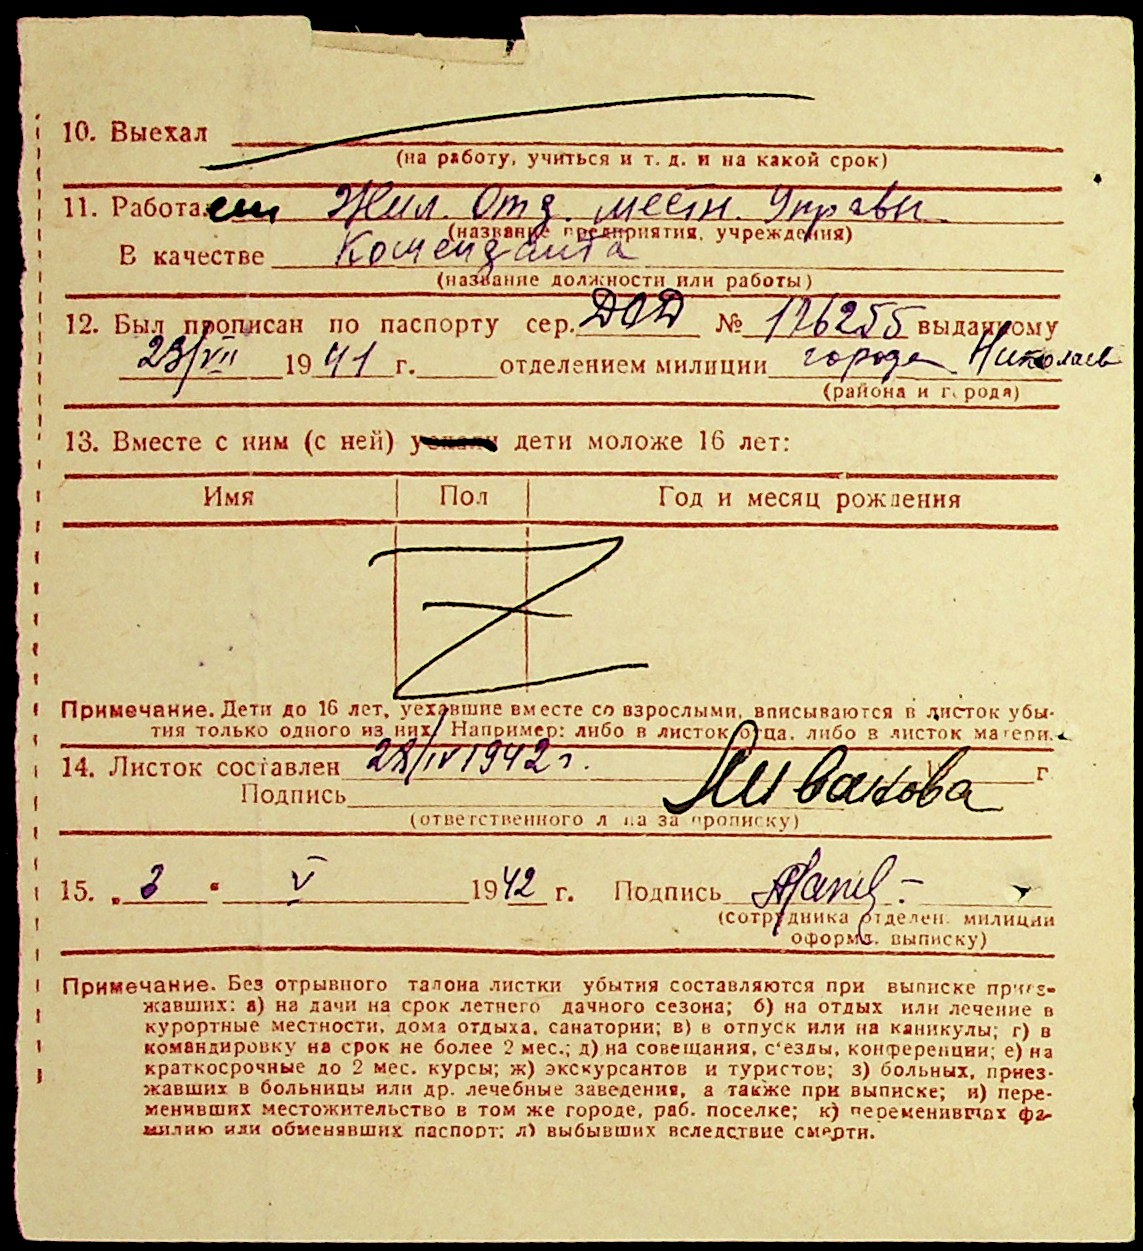 10. Выехал
(на работу, учиться и т. д. и на какой срок)
11. Работает Жил. Отд. местн. Управы
(название предприятия, учреждения)
В качестве Коменданта
(название должности или работы)
12. Был прописан по паспорту сер. ДОД № 176255 выданному
23/VII 1941 г. отделением милиции города Николаев
(района и города)
13. Вместе с ним (с ней) дети моложе 16 лет:
Имя Пол Год и месяц рождения
Примечание. Дети до 16 лет, уехавшие вместе со взрослыми, вписываются в листок убы-
тия только одного из них. Например: либо в листок отца, либо в листок матери.
14. Листок составлен 28/IV 1942 г. г
Подпись
(ответственного лица за прописку)
15. „3“ V 1942 г. Подпись
(сотрудника отделен. милиции
оформл. выписку)
Примечание. Без отрывного талона листки убытия составляются при выписке приез-
жавших: а) на дачи на срок летнего дачного сезона; б) на отдых или лечение в
курортные местности, дома отдыха, санатории; в) в отпуск или на каникулы; г) в
командировку на срок не более 2 мес.; д) на совещания, с'езды, конференции; е) на
краткосрочные до 2 мес. курсы; ж) экскурсантов и туристов; з) больных, приез-
жавших в больницы или др. лечебные заведения, а также при выписке; и) пере-
менивших местожительство в том же городе, раб. поселке; к) переменивших фа-
милию или обменявших паспорт; л) выбывших вследствие смерти.